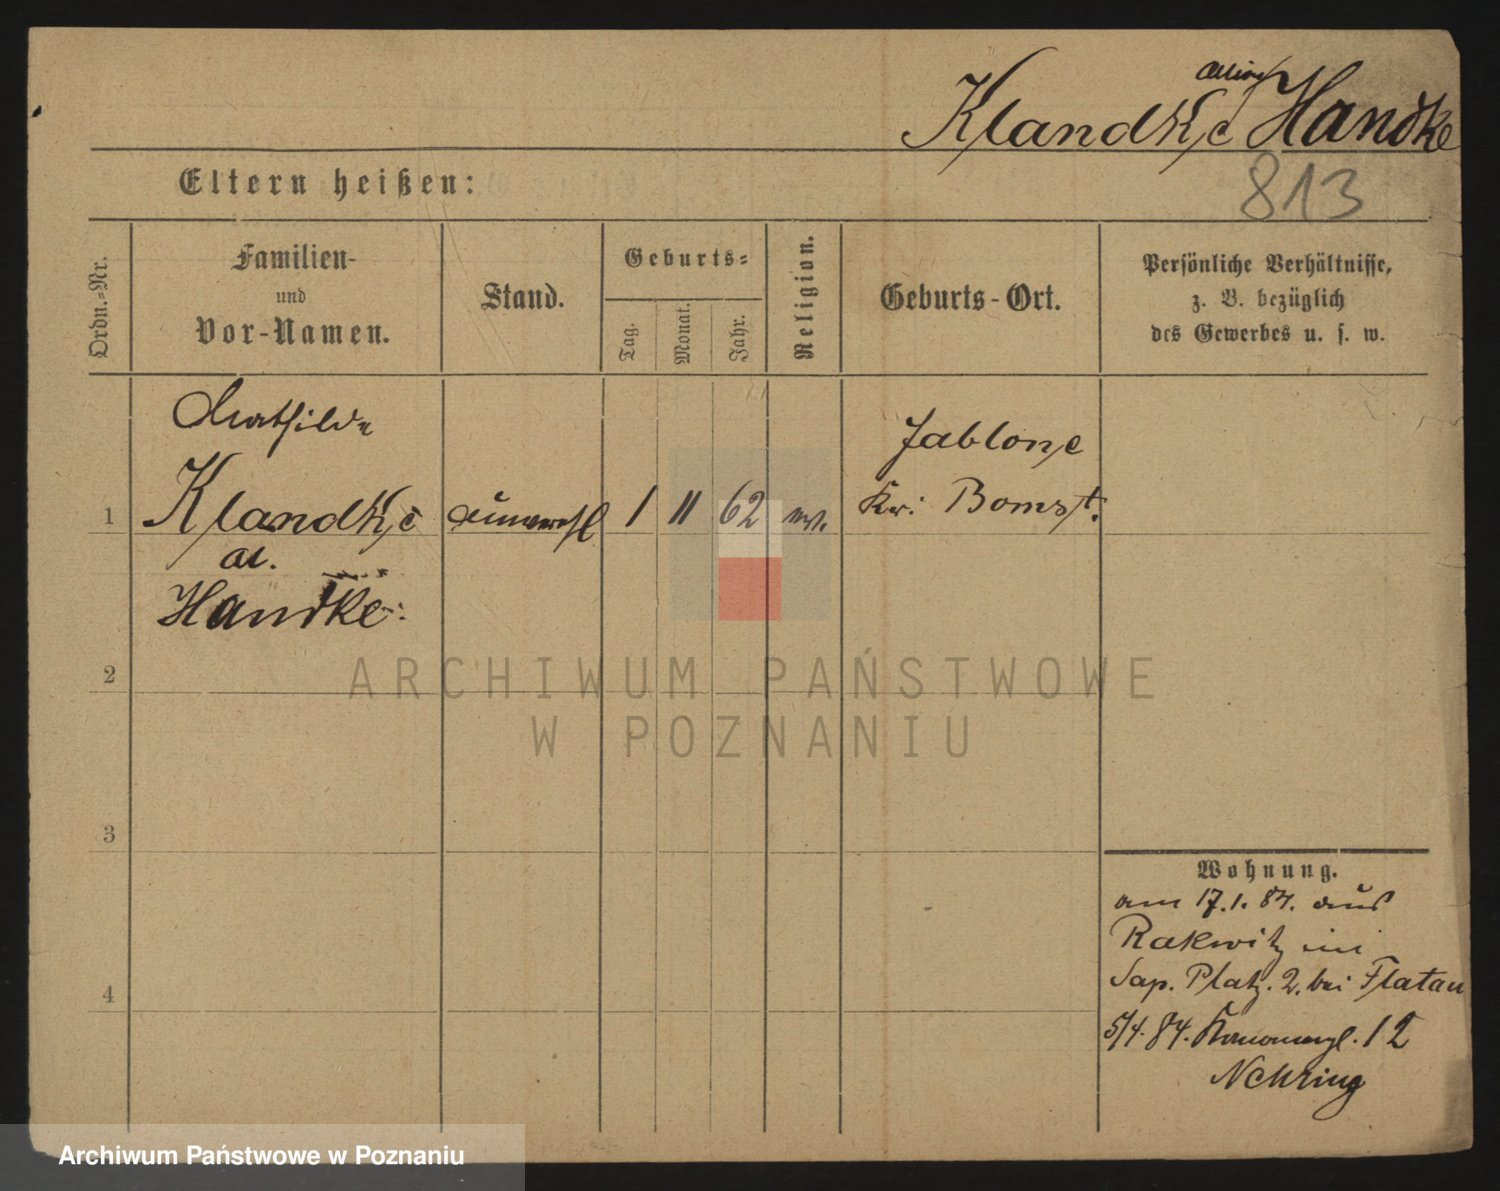 alias
Klandke Handke
813
Eltern heißen:
Ordn.-Nr.
Familien-
und
Vor-Namen.
Stand.
Geburts-
Tag.
Monat.
Jahr.
Religion.
Geburts-Ort.
Persönliche Verhältnisse,
z. B. bezüglich
des Gewerbes u. s. w.
Mathilde
Jablone
1 Klandke unverehl 1 11 62 ev. Kr. Bomst.
al.
Handke
2
ARCHIWUM PAŃSTWOWE
W POZNANIU
3
Wohnung.
am 17.1.84. aus
Rakwitz
4
Sap. Platz. 2. bei Flatau
5/4. 84. 12
Nehring
Archiwum Państwowe w Poznaniu